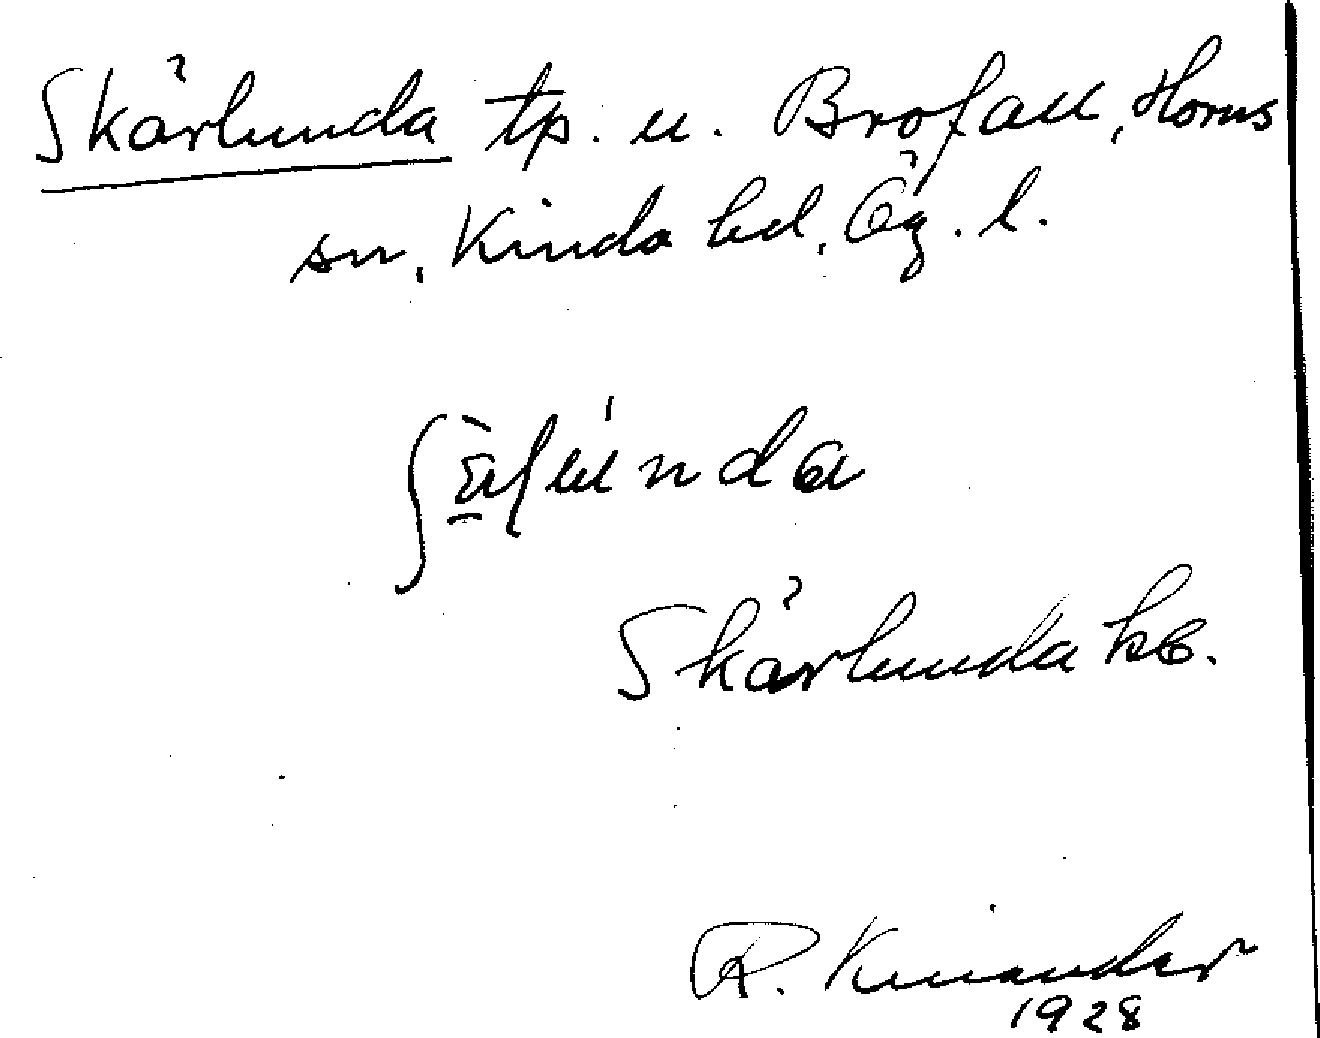 Skärlunda tp. u. Bröfall, Horns
sn, Kinda hd, Ög. l.
Skärlunda kb.
R. Kinander
1928